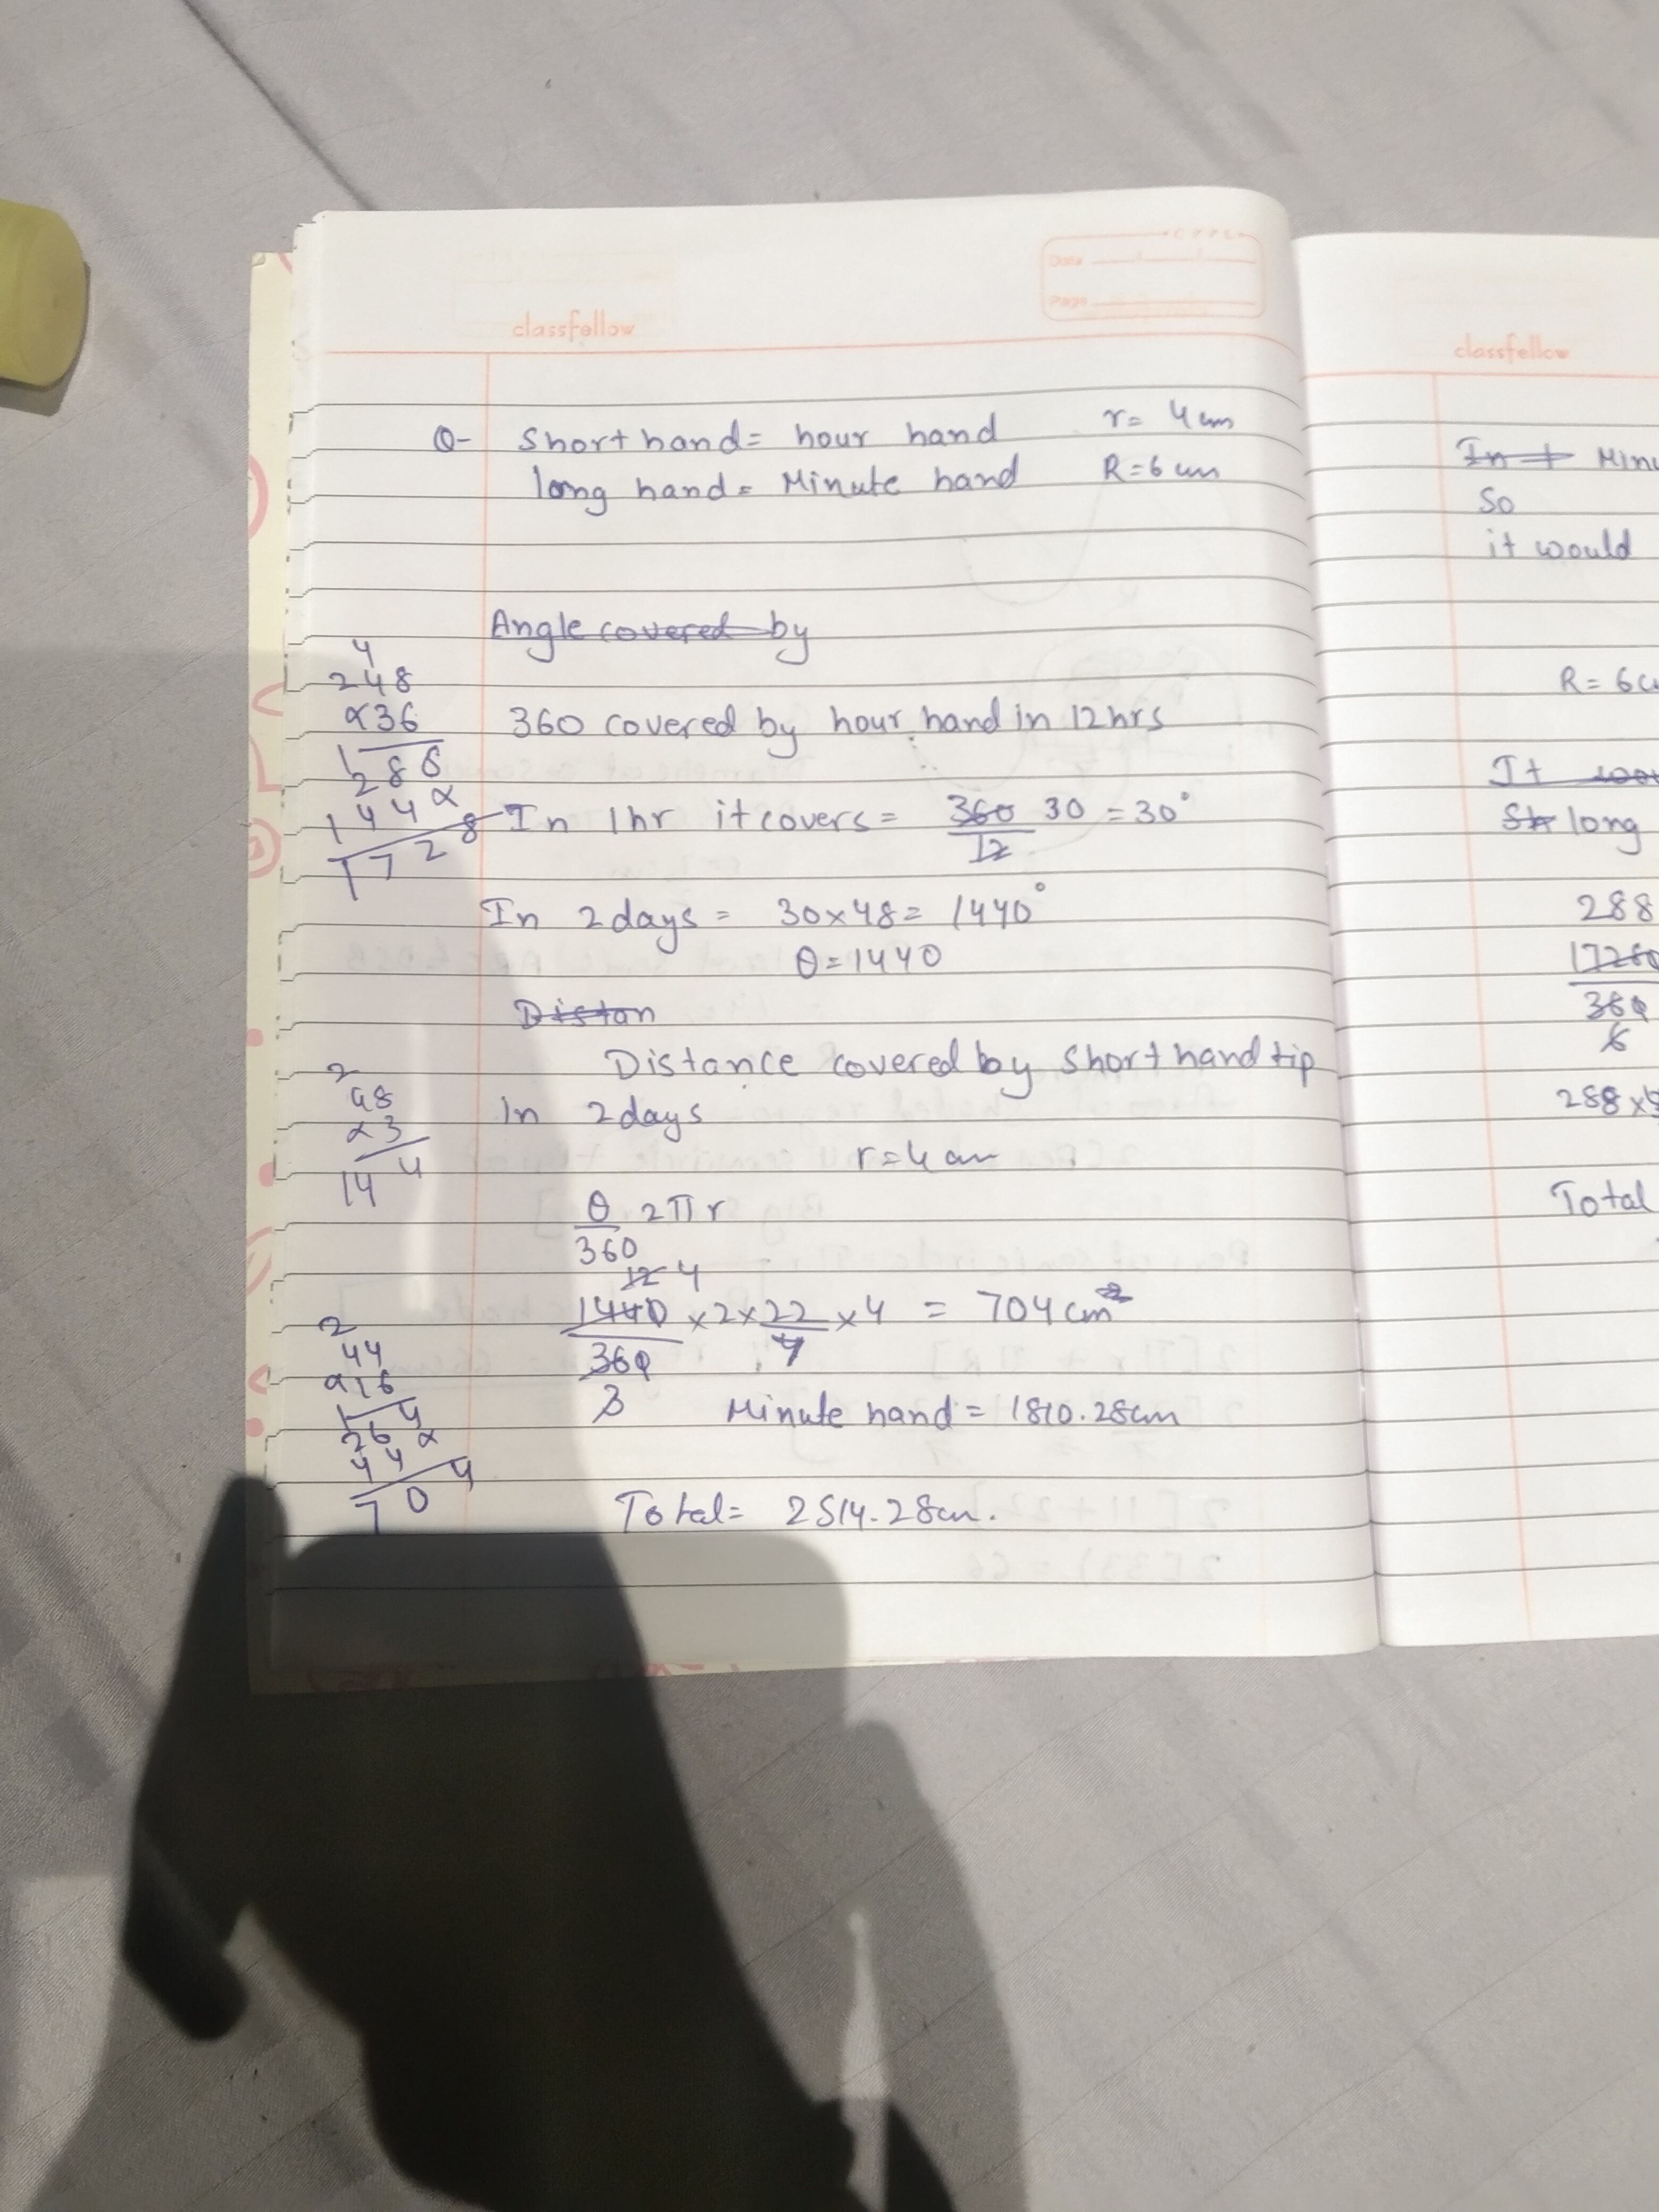 Date
Page
classfellow
Q- Short hand = hour hand r= 4cm
long hand = Minute hand R=6cm
Angle covered by
360 covered by hour hand in 12hrs
In 1hr it covers = 360/12 30 = 30°
In 2days = 30×48= 1440°
θ=1440
Distan
Distance covered by short hand tip
In 2days
r=4cm
θ/360 2πr
12 4
1440/360 ×2×22/7×4 = 704cm
3
Minute hand = 1810.28cm
Total= 2514.28cm.
4
248
×36
1
288
144×
1728
2
48
×3
144
2
44
×16
1
264
44×
704
classfellow
In 1 Minu
So
it would
R=6c
It
long
288
1728
360
6
288×
Total